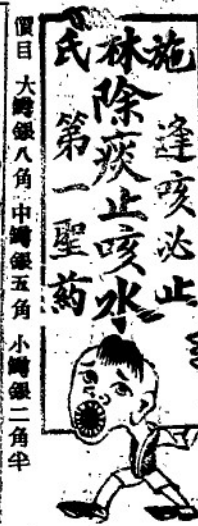 施林氏
逢咳必止
除痰止咳水
第一聖葯
價目 大罇銀八角 中罇銀五角 小罇銀二角半